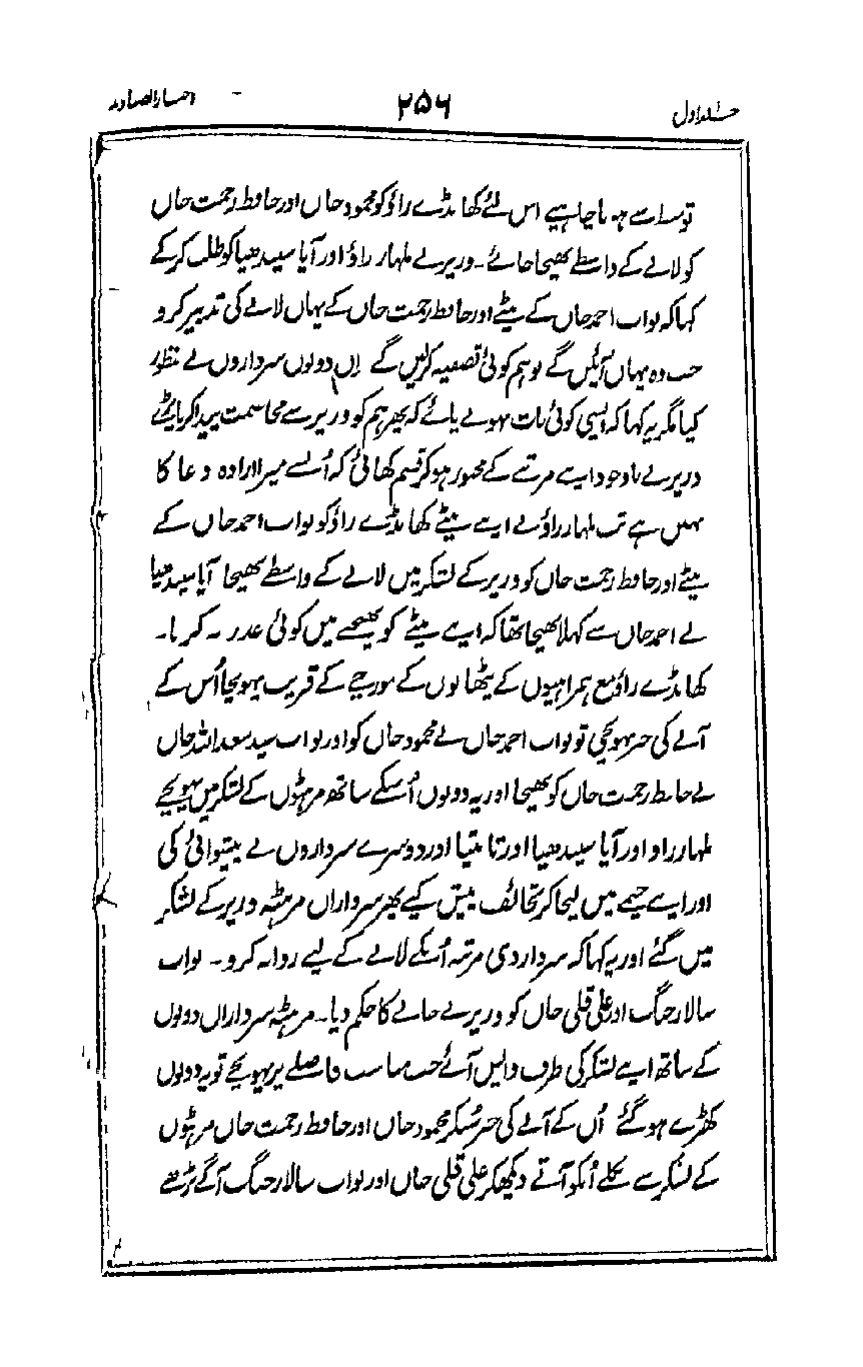 حصہ اول
۲۵۶
اخبار الصنادید
تو مناسب ہونا چاہیے اس لئے کھانڈے راؤ کو محمود خاں اور حافظ رحمت خاں
کو لانے کے واسطے بھیجا جائے۔ وزیر نے ملہار راؤ اور آپا سیندھیا کو طلب کرکے
کہا کہ نواب احمد خاں کے بیٹے اور حافظ رحمت خاں کے یہاں لانے کی تدبیر کرو
جب وہ یہاں آئیں گے تو ہم کوئی تصفیہ کرلیں گے ان دونوں سرداروں نے منظور
کیا مگر یہ کہا کہ ایسی کوئی بات نہونے پائے کہ پھر ہم کو وزیر سے مخاصمت پیدا کرنا پڑے
وزیر نے باوجود اپنے مرتبے کے مجبور ہو کر قسم کھائی کہ اُنسے میرا ارادہ دغا کا
نہیں ہے تب ملہار راؤ نے اپنے بیٹے کھانڈے راؤ کو نواب احمد خاں کے
بیٹے اور حافظ رحمت خاں کو وزیر کے لشکر میں لانے کے واسطے بھیجا آپا سیندھیا
نے احمد خاں سے کہلا بھیجا تھا کہ اپنے بیٹے کو بھیجنے میں کوئی عذر نہ کرنا۔
کھانڈے راؤ مع ہمراہیوں کے پٹھانوں کے مورچے کے قریب پہونچا اُس کے
آنے کی خبر پہونچی تو نواب احمد خاں نے محمود خاں کو اور نواب سید سعد اللہ خاں
نے حافظ رحمت خاں کو بھیجا اور یہ دونوں اُسکے ساتھ مرہٹوں کے لشکر میں پہونچے
ملہار راو اور آپا سیندھیا اور تانتیا اور دوسرے سرداروں نے پیشوائی کی
اور اپنے خیمے میں لیجا کر تحائف پیش کیے پھر سرداران مرہٹہ وزیر کے لشکر
میں گئے اور یہ کہا کہ سردار ذی مرتبہ اُنکے لانے کے لیے روانہ کرو۔ نواب
سالار جنگ اور علی قلی خاں کو وزیر نے جانے کا حکم دیا۔ مرہٹہ سرداراں دونوں
کے ساتھ اپنے لشکر کی طرف واپس آئے جب مناسب فاصلے پر پہونچے تو یہ دونوں
کھڑے ہو گئے اُن کے آنے کی خبر سُنکر محمود خاں اور حافظ رحمت خاں مرہٹوں
کے لشکر سے نکلے اُنکو آتے دیکھکر علی قلی خاں اور نواب سالار جنگ آگے بڑھے